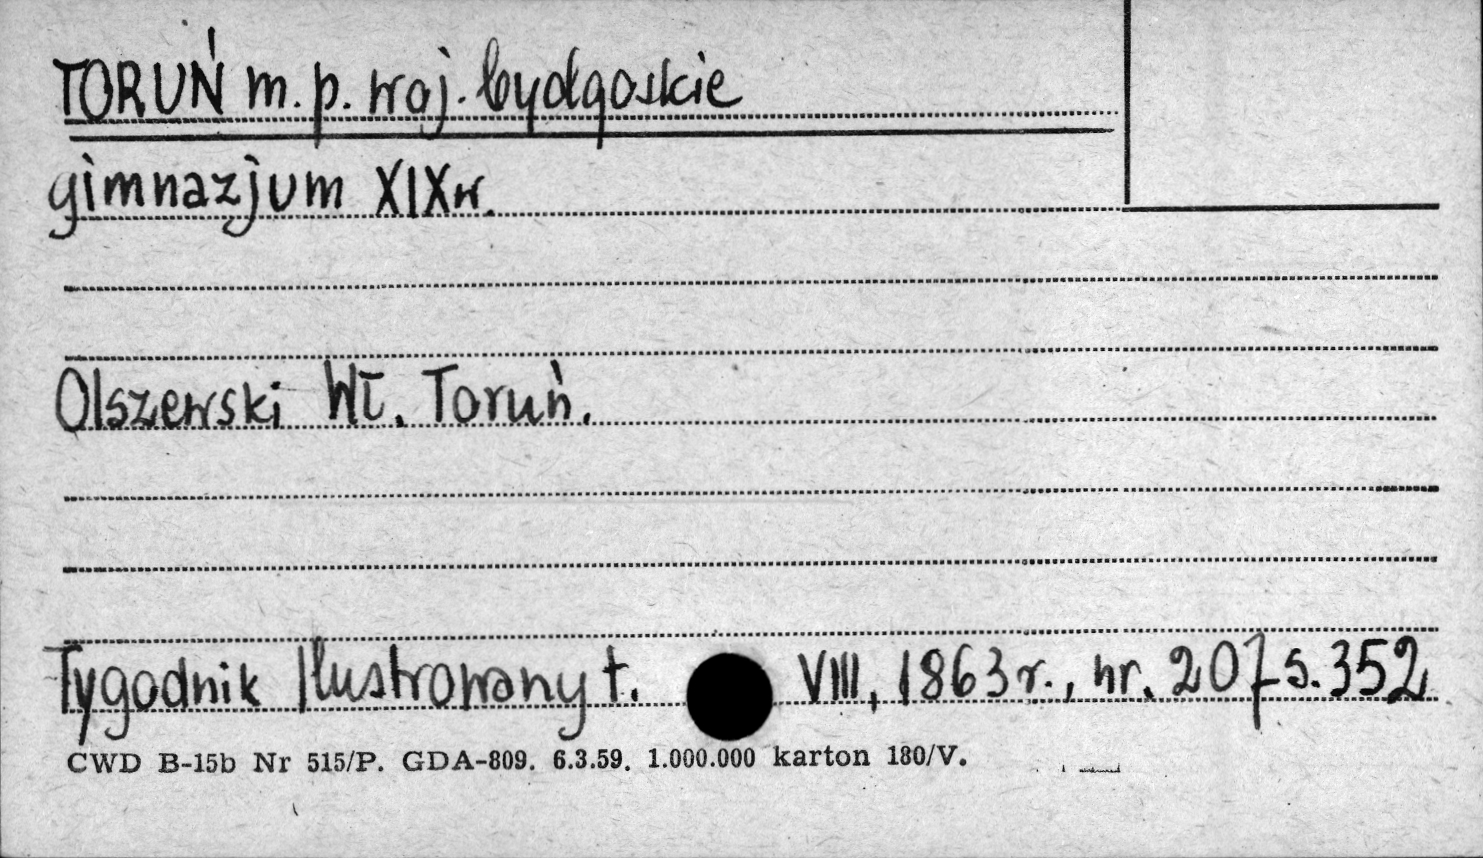 TORUŃ m. p. woj. bydgoskie
gimnazjum XIX w.
Olszewski Wł. Toruń.
Tygodnik Ilustrowany t. VIII, 1863 r., nr. 207 s. 352
CWD B-15b Nr 515/P. GDA-809. 6.3.59. 1.000.000 karton 180/V.